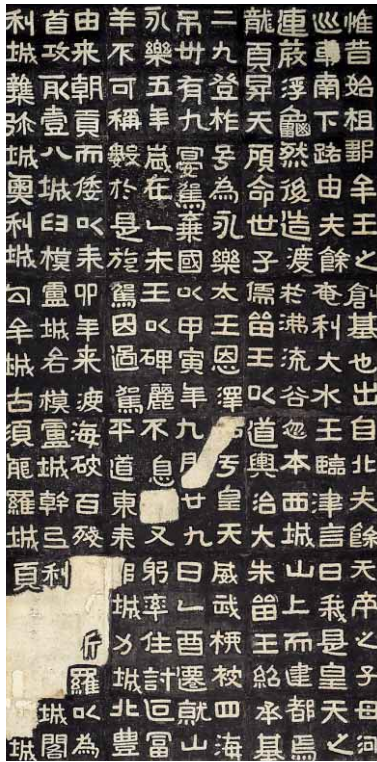 惟昔始祖鄒牟王之創基也出自北夫餘天帝之子母河
巡車南下路由夫餘奄利大水王臨津言曰我是皇天之
連葭浮龜然後造渡於沸流谷忽本西城山上而建都焉
龍頁昇天顧命世子儒留王以道興治大朱留王紹承基
二九登祚号為永樂太王恩澤于皇天威武柳被四海
弔卅有九宴駕棄國以甲寅年九月廿九日乙酉遷就山
永樂五年歲在乙未王以碑麗不息又躬率住討過富
羊不可稱數於是旋駕因過駕平道東来城力城北豊
由来朝貢而倭以耒卯年来渡海破百殘斤羅以為
首攻取壹八城臼模盧城各模盧城幹弖利城閣
利城雜弥城奥利城勾牟城古須耶羅城頁城